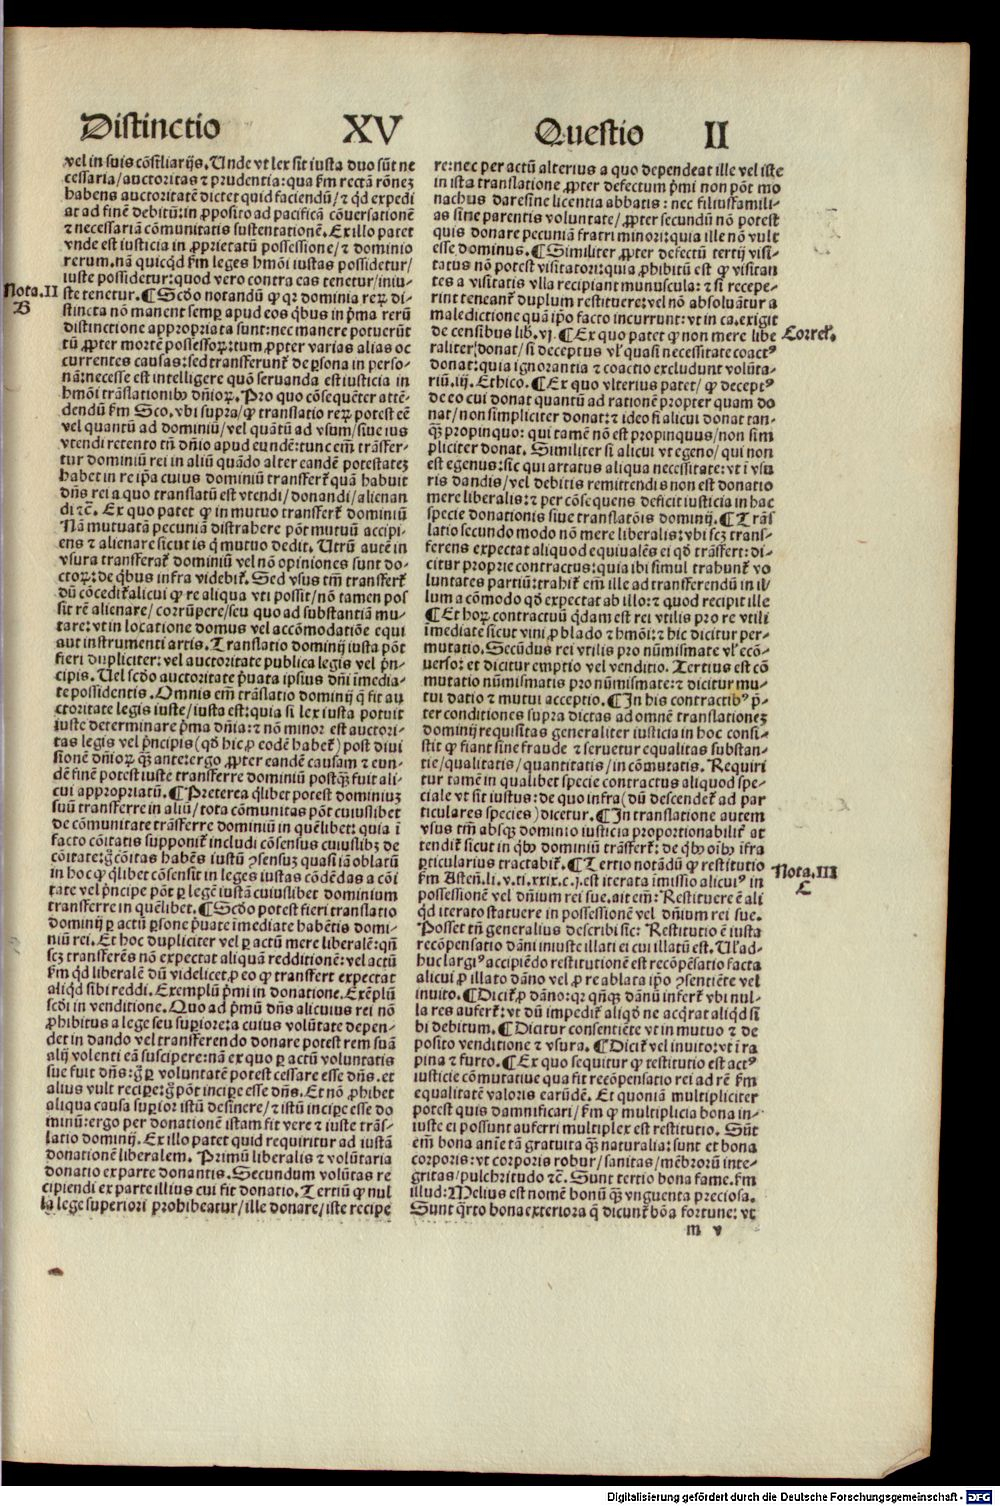 Distinctio XV Questio II
vel in suis cōsiliarijs. Unde vt lex sit iusta duo sūt ne
cessaria/auctoritas ⁊ prudentia: qua ẜm rectā rōneꝫ
habens auctoritatē dictet quid faciendū/⁊ qd̛ expedi
at ad finē debitū: in ꝓposito ad pacificā cōuersationē
⁊ necessariā cōmunitatis sustentationē. Ex illo patet
vnde est iusticia in ꝓprietatū possessione/⁊ dominio
rerum. nā quicqd̛ ẜm leges hmōi iustas possidetur/
iuste possidetur: quod vero contra eas tenetur/iniu-
Nota. II
B
ste tenetur. ¶ Scd̛o notandū ꝙ qꝛ dominia reꝝ di-
stincta nō manent semꝑ apud eos q̄bus in p̄ma rerū
distinctione appropriata sunt: nec manere potuerūt
tū ꝓpter mortē possessoꝝ: tum ꝓpter varias alias oc
currentes causas: sed transferunt̛ de ꝑsona in perso-
nā: necesse est intelligere quō seruanda est iusticia in
hmōi trāslationibꝫ dn̄ioꝝ. Pro quo cōsequēter attē-
dendū ẜm Sco. vbi supra/ꝙ translatio reꝝ potest eē
vel quantū ad dominiū/vel quātū ad vsum/siue ius
vtendi retento tn̄ dn̄io apud eundē: tunc em̄ trāsfer-
tur dominiū rei in aliū quādo alter eandē potestateꝫ
habet in re ip̄a cuius dominiū transfert̛ quā habuit
dn̄s rei a quo translatū est vtendi/donandi/alienan
di ⁊c̄. Ex quo patet ꝙ in mutuo transfert̛ dominiū
Nā mutuatā pecuniā distrahere pōt mutuū accipi-
ens ⁊ alienare sicut is q̄ mutuo dedit. Utrū autē in
vsura transferat̛ dominiū vel nō opiniones sunt do-
ctoꝝ: de q̄bus infra videbit̛. Sed vsus tm̄ transfert̛
dū cōcedit̛ alicui ꝙ re aliqua vti possit/nō tamen pos
sit rē alienare/corrūpere/seu quo ad substantiā mu-
tare: vt in locatione domus vel accōmodatiōe equi
aut instrumenti artis. Translatio dominij iusta pōt
fieri dupliciter: vel auctoritate publica legis vel p̄n-
cipis. Uel scd̛o auctoritate p̄uata ipsius dn̄i īmedia-
te possidentis. Omnis em̄ trāslatio dominij q̄ fit au
ctoritate legis iuste/iusta est: quia si lex iusta potuit
iuste determinare p̄ma dn̄ia: ⁊ nō minor est auctori-
tas legis vel p̄ncipis (qd̛ hic ꝓ eodē habet̛) post diui
sionē dn̄ioꝝ q̄ꝫ ante: ergo ꝓpter eandē causam ⁊ eun-
dē finē potest iuste transferre dominiū postq̄ꝫ fuit ali-
cui appropriatū. ¶ Preterea q̄libet potest dominiuꝫ
suū transferre in aliū/tota cōmunitas pōt cuiuslibet
de cōmunitate trāsferre dominiū in quēlibet: quia ī
facto cōitatis supponit̛ includi cōsensus cuiuslibꝫ de
cōitate: g̊ cōitas habēs iustū ꝯsensuꝫ quasi iā oblatū
in hoc ꝙ q̄libet cōsensit in leges iustas cōdēdas a cōi
tate vel p̄ncipe pōt ꝑ legē iustā cuiuslibet dominium
transferre in quēlibet. ¶ Scd̛o potest fieri translatio
dominij ꝑ actū ꝑsone p̄uate īmediate habētis domi-
niū rei. Et hoc dupliciter vel ꝑ actū mere liberalē: qn̄
scꝫ transferēs nō expectat aliquā redditionē: vel actū
ẜm qd̛ liberalē dū videlicet ꝓ eo ꝙ transfert expectat
aliqd̛ sibi reddi. Exemplū p̄mi in donatione. Exēplū
scd̛i in venditione. Quo ad p̄mū dn̄s alicuius rei nō
ꝓhibitus a lege seu suꝑiore: a cuius volūtate depen-
det in dando vel transferendo donare potest rem suā
alij volenti eā suscipere: nam ex quo ꝑ actū voluntatis
sue fuit dn̄s: g̊ ꝑ voluntatē potest cessare esse dn̄s. et
alius vult reciꝑe: g̊ pōt inciꝑe esse dn̄s. Et nō ꝓhibet
aliqua causa suꝑior istū desinere/⁊ istū inciꝑe esse do
minū: ergo per donationē istam fit vere ⁊ iuste trās-
latio dominij. Ex illo patet quid requiritur ad iustā
donationē liberalem. Primū liberalis ⁊ volūtaria
donatio ex parte donantis. Secundum volūtas re
cipiendi ex parte illius cui fit donatio. Tertiū ꝙ nul
la lege superiori prohibeatur/ille donare/iste recipe
re: nec per actū alterius a quo dependeat ille vel iste
in ista translatione ꝓpter defectum p̄mi non pōt mo
nachus dare sine licentia abbatis: nec filiusfamili-
as sine parentis voluntate/ꝓpter secundū nō potest
quis donare pecuniā fratri minori: quia ille nō vult
esse dominus. ¶ Similiter ꝓpter defectū tertij visi-
tatus nō potest visitatori: quia ꝓhibitū est ꝙ visitan
tes a visitatis vlla recipiant munuscula: ⁊ si recepe-
rint teneant̛ duplum restituere: vel nō absoluātur a
maledictione quā ip̄o facto incurrunt: vt in ca. exigit
de censibus lib. vj. ¶ Ex quo patet ꝙ non mere libe
Correl̛.
raliter donat/si deceptus vl̛ quasi necessitate coactꝰ
donat: quia ignorantia ⁊ coactio excludunt volūta-
riū. iij. Ethico. ¶ Ex quo vlterius patet/ꝙ deceptꝰ
de eo cui donat quantū ad rationē propter quam do
nat/non simpliciter donat: ⁊ ideo si alicui donat tan-
q̄ꝫ propinquo: qui tamē nō est propinquus/non sim
pliciter donat. Similiter si alicui vt egeno/qui non
est egenus: sic qui artatus aliqua necessitate: vt ī vsu
ris dandis/vel debitis remittendis non est donatio
mere liberalis: ⁊ per cōsequens deficit iusticia in hac
specie donationis siue translatōis dominij. ¶ Trās
latio secundo modo nō mere liberalis: vbi scꝫ trans-
ferens expectat aliquod equiualēs ei qd̛ trāsfert: di-
citur proprie contractus: quia ibi simul trahunt̛ vo
luntates partiū: trahit̛ em̄ ille ad transferendū in il/
lum a cōmodo qd̛ expectat ab illo: ⁊ quod recipit ille
¶ Et hoꝝ contractuū q̄dam est rei vtilis pro re vtili
īmediate sicut vini ꝓ blado ⁊ hmōi: ⁊ hic dicitur per-
mutatio. Secūdus rei vtilis pro nūmismate vl̛ ecō-
uerso: et dicitur emptio vel venditio. Tertius est cō
mutatio nūmismatis pro nūmismate: ⁊ dicitur mu-
tui datio ⁊ mutui acceptio. ¶ In his contractibꝰ p̄-
ter conditiones supra dictas ad omnē translationeꝫ
dominij requisitas generaliter iusticia in hoc consi-
stit ꝙ fiant sine fraude ⁊ seruetur equalitas substan-
tie/qualitatis/quantitatis/in cōmutatis. Requiri
tur tamē in qualibet specie contractus aliquod spe-
ciale vt sit iustus: de quo infra (dū descendet̛ ad par
ticulares species) dicetur. ¶ In translatione autem
vsus tm̄ absqꝫ dominio iusticia proportionabilit̛ at
tendit̛ sicut in qbꝫ dominiū trāsfert̛: de qbꝫ oībꝫ īfra
ꝑticularius tractabit̛. ¶ Tertio notādū ꝙ restitutio
Nota. III
C
ẜm Asteñ. li. v. ti. xxix. c. j. est iterata īmissio alicuiꝰ in
possessionē vel dn̄ium rei sue. ait em̄: Restituere ē ali
qd̛ iterato statuere in possessionē vel dn̄ium rei sue.
Posset tn̄ generalius describi sic: Restitutio ē iusta
recōpensatio dāni iniuste illati ei cui illatū est. Ul̛ ad-
huc largiꝰ accipiēdo restitutionē est recōpēsatio facta
alicui ꝓ illato dāno vel ꝓ re ablata ip̄o ꝯsentiēte vel
inuito. ¶ Dicit̛ ꝓ dāno: qꝛ qn̄qꝫ dānū infert̛ vbi nul-
la res aufert̛: vt dū impedit̛ aliqs̛ ne acq̄rat aliqd̛ si
bi debitum. ¶ Dicitur consentiēte vt in mutuo ⁊ de
posito venditione ⁊ vsura. ¶ Dicit̛ vel inuito: vt ī ra
pina ⁊ furto. ¶ Ex quo sequitur ꝙ restitutio est actꝰ
iusticie cōmutatiue qua fit recōpensatio rei ad rē ẜm
equalitatē valoris earūdē. Et quoniā multipliciter
potest quis damnificari/ẜm ꝙ multiplicia bona in-
iuste ei possunt auferri multiplex est restitutio. Sūt
em̄ bona aīe tā gratuita q̄ꝫ naturalia: sunt et bona
corporis: vt corporis robur/sanitas/mēbrorū inte-
gritas/pulchritudo ⁊c̄. Sunt tertio bona fame. ẜm
illud: Melius est nomē bonū q̄ꝫ vnguenta preciosa.
Sunt q̄rto bona exteriora q̄ dicunt̛ bōa fortune: vt
m v
Digitalisierung gefördert durch die Deutsche Forschungsgemeinschaft - DFG